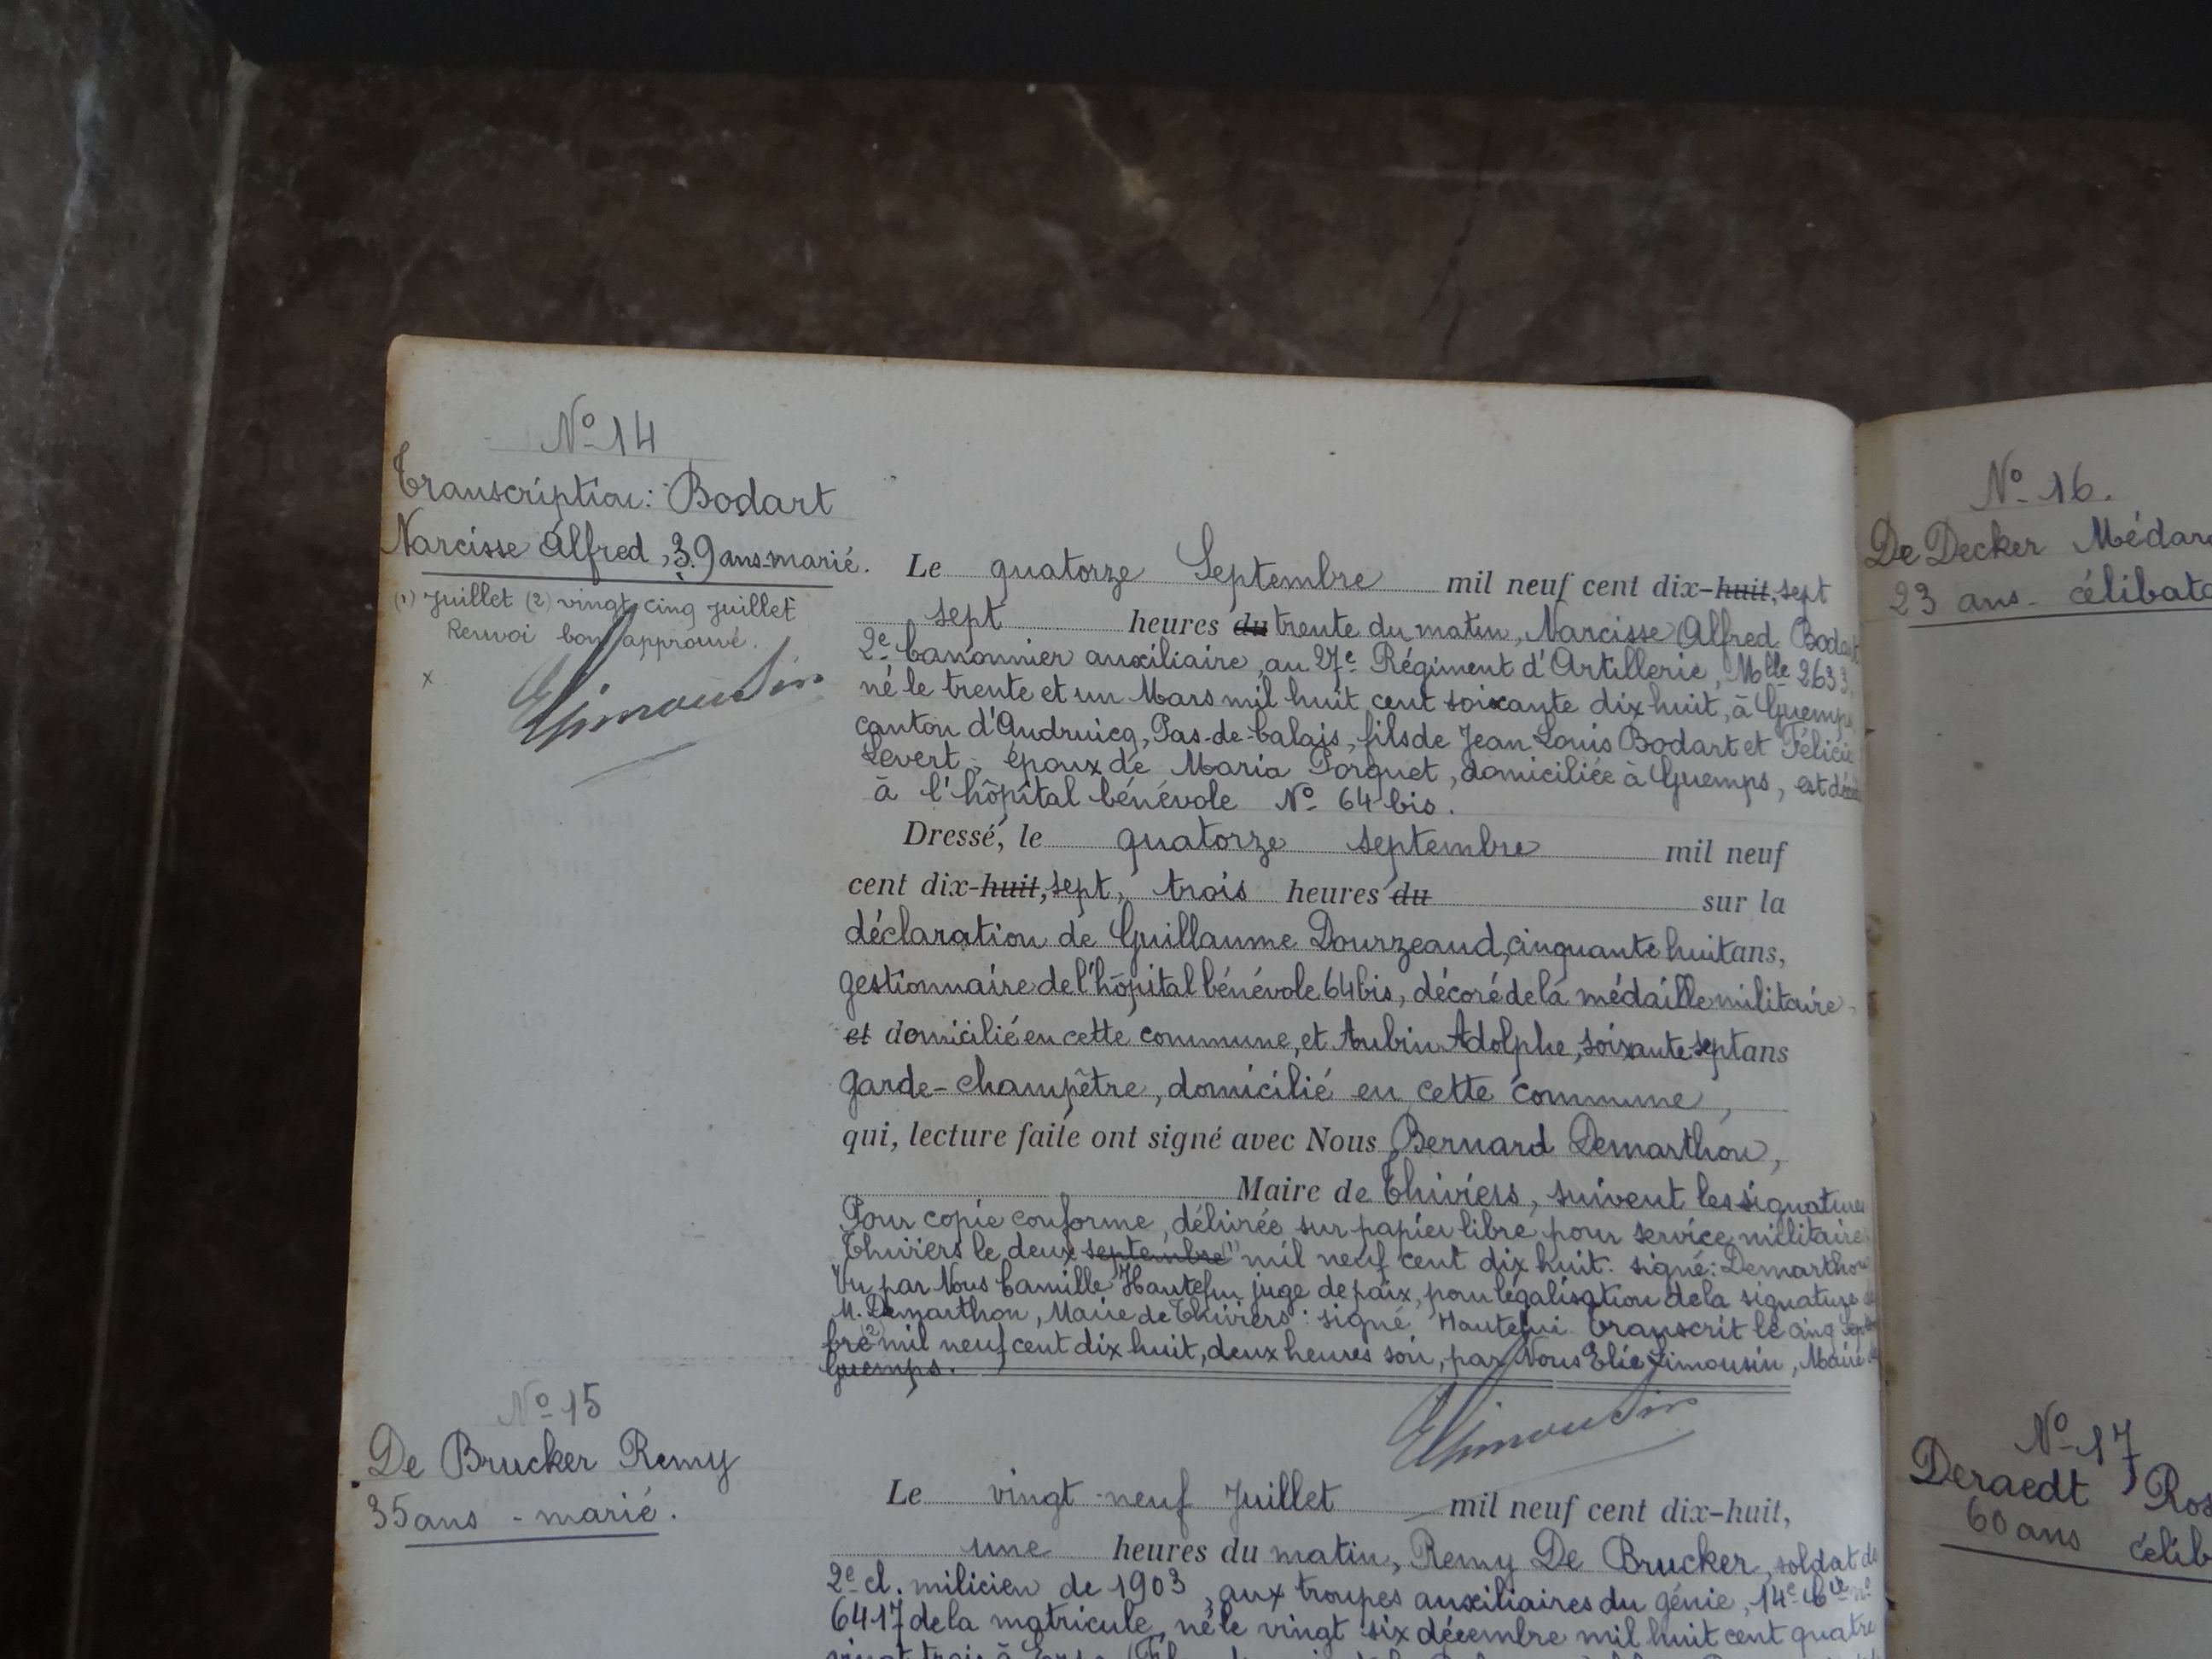 Nº 14
Transcription: Bodart
Narcisse Alfred, 39 ans-marié.
(1) Juillet (2) vingt cinq Juillet
Renvoi bon approuvé.
x
ELimousin
Le quatorze Septembre mil neuf cent dix-huit, sept
sept heures du trente du matin, Narcisse Alfred Bodart
2e canonnier auxiliaire, au 27e Régiment d'Artillerie, Mlle 2633,
né le trente et un Mars mil huit cent soixante dix huit, à Guemps
canton d'Audruicq, Pas-de-Calais, fils de Jean Louis Bodart et Félicie
Levert, époux de Maria Porquet, domiciliée à Guemps, est
à l'hôpital bénévole Nº 64 bis.
Dressé, le quatorze septembre mil neuf
cent dix-huit, sept, trois heures du sur la
déclaration de Guillaume Dourzeaud, cinquante huit ans,
gestionnaire de l'hôpital bénévole 64 bis, décoré de la médaille militaire
et domicilié en cette commune, et Aubin Adolphe, soixante sept ans
garde-champêtre, domicilié en cette commune,
qui, lecture faite ont signé avec Nous Bernard Demarthon,
Maire de Thiviers, suivent les signatures
Pour copie conforme, délivrée sur papier libre pour service militaire
Thiviers le deux septembre (1) mil neuf cent dix huit. signé: Demarthon
Vu par Nous Camille Hautefui juge de paix, pour légalisation de la signature de
M. Demarthon, Maire de Thiviers: signé Hautefui. Transcrit le cinq septem
bre (2) mil neuf cent dix huit, deux heures soir, par Nous Elie Limousin, Maire de
Guemps.
ELimousin
Nº 15
De Brucker Remy
35 ans - marié.
Le vingt-neuf Juillet mil neuf cent dix-huit,
une heures du matin, Remy De Brucker, soldat de
2e cl. milicien de 1903, aux troupes auxiliaires du génie, 14e Cie nº
6417 de la matricule, né le vingt six décembre mil huit cent quatre
vingt trois à
Nº 16.
De Decker Médard
23 ans - célibata
Nº 17
Deraedt Ros
60 ans célib